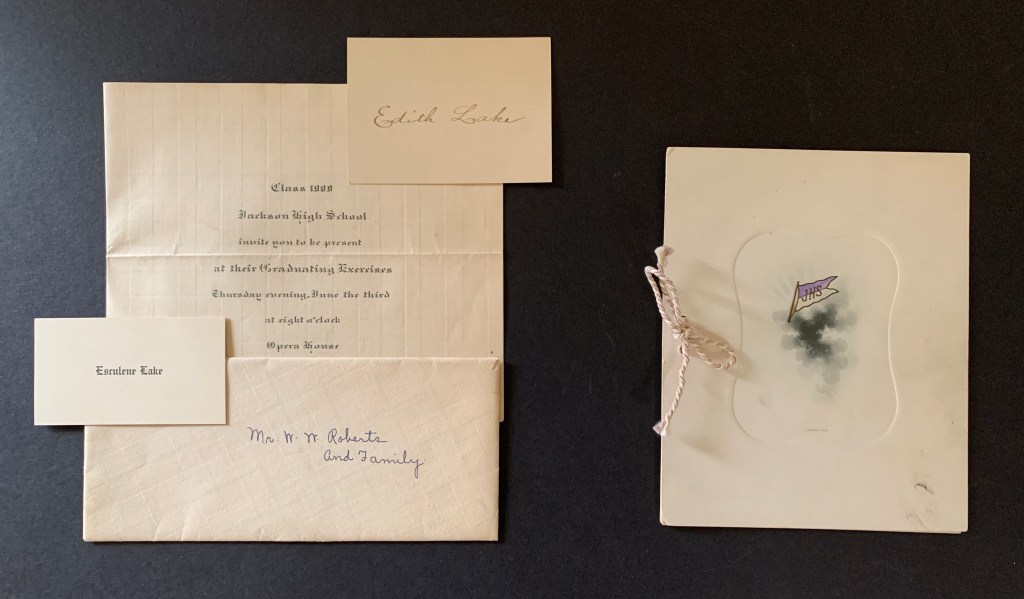 Edith Lake
Class 1909
Jackson High School
invite you to be present
at their Graduating Exercises
Thursday evening, June the third
at eight o'clock
Opera House
Esculene Lake
Mr. W. W. Roberts
And Family
JHS